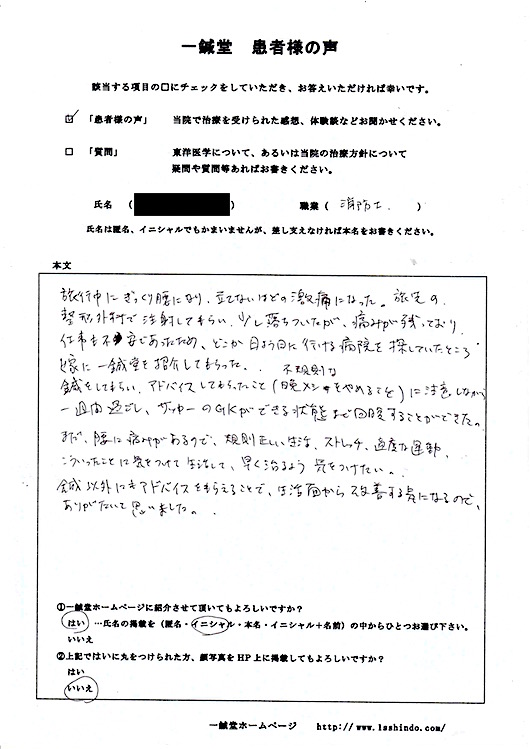 一鍼堂 患者様の声
該当する項目の□にチェックをしていただき、お答えいただければ幸いです。
☑ 「患者様の声」 当院で治療を受けられた感想、体験談などお聞かせください。
□ 「質問」 東洋医学について、あるいは当院の治療方針について
疑問や質問等あればお書きください。
氏名 ( ) 職業 ( 消防士. )
氏名は匿名、イニシャルでもかまいませんが、差し支えなければ本名をお書きください。
本文
旅行中にぎっくり腰になり、立てないほどの激痛になった。旅先の
整形外科で注射してもらい、少し落ちついたが、痛みが残っており、
仕事も不安であったため、どこか日よう日に行ける病院を探していたところ
嫁に一鍼堂を紹介してもらった。
不規則な
鍼をしてもらい、アドバイスしてもらったこと(晩メシをやめること)に注意しながら
一週間過ごし、サッカーのGKができる状態まで回腹することができた。
まだ、腰に痛みがあるので、規則正しい生活、ストレッチ、適度な運動、
こういったことに気をつけて生活して、早く治るよう気をつけたい。
鍼以外にもアドバイスをもらえることで、生活面から改善する気になるので、
ありがたいと思いました。
①一鍼堂ホームページに紹介させて頂いてもよろしいですか?
はい …氏名の掲載を(匿名・イニシャル・本名・イニシャル+名前)の中からひとつお選び下さい。
いいえ
②上記ではいに丸をつけられた方、顔写真をHP上に掲載してもよろしいですか?
はい
いいえ
一鍼堂ホームページ http://www.1sshindo.com/